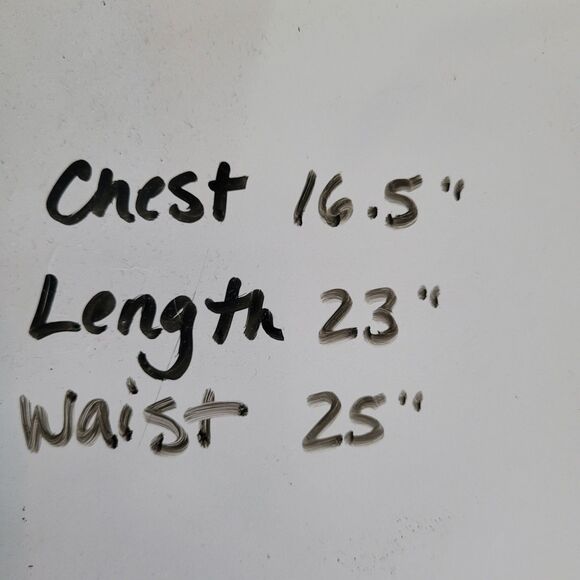 Chest 16.5"
Length 23"
Waist 25"